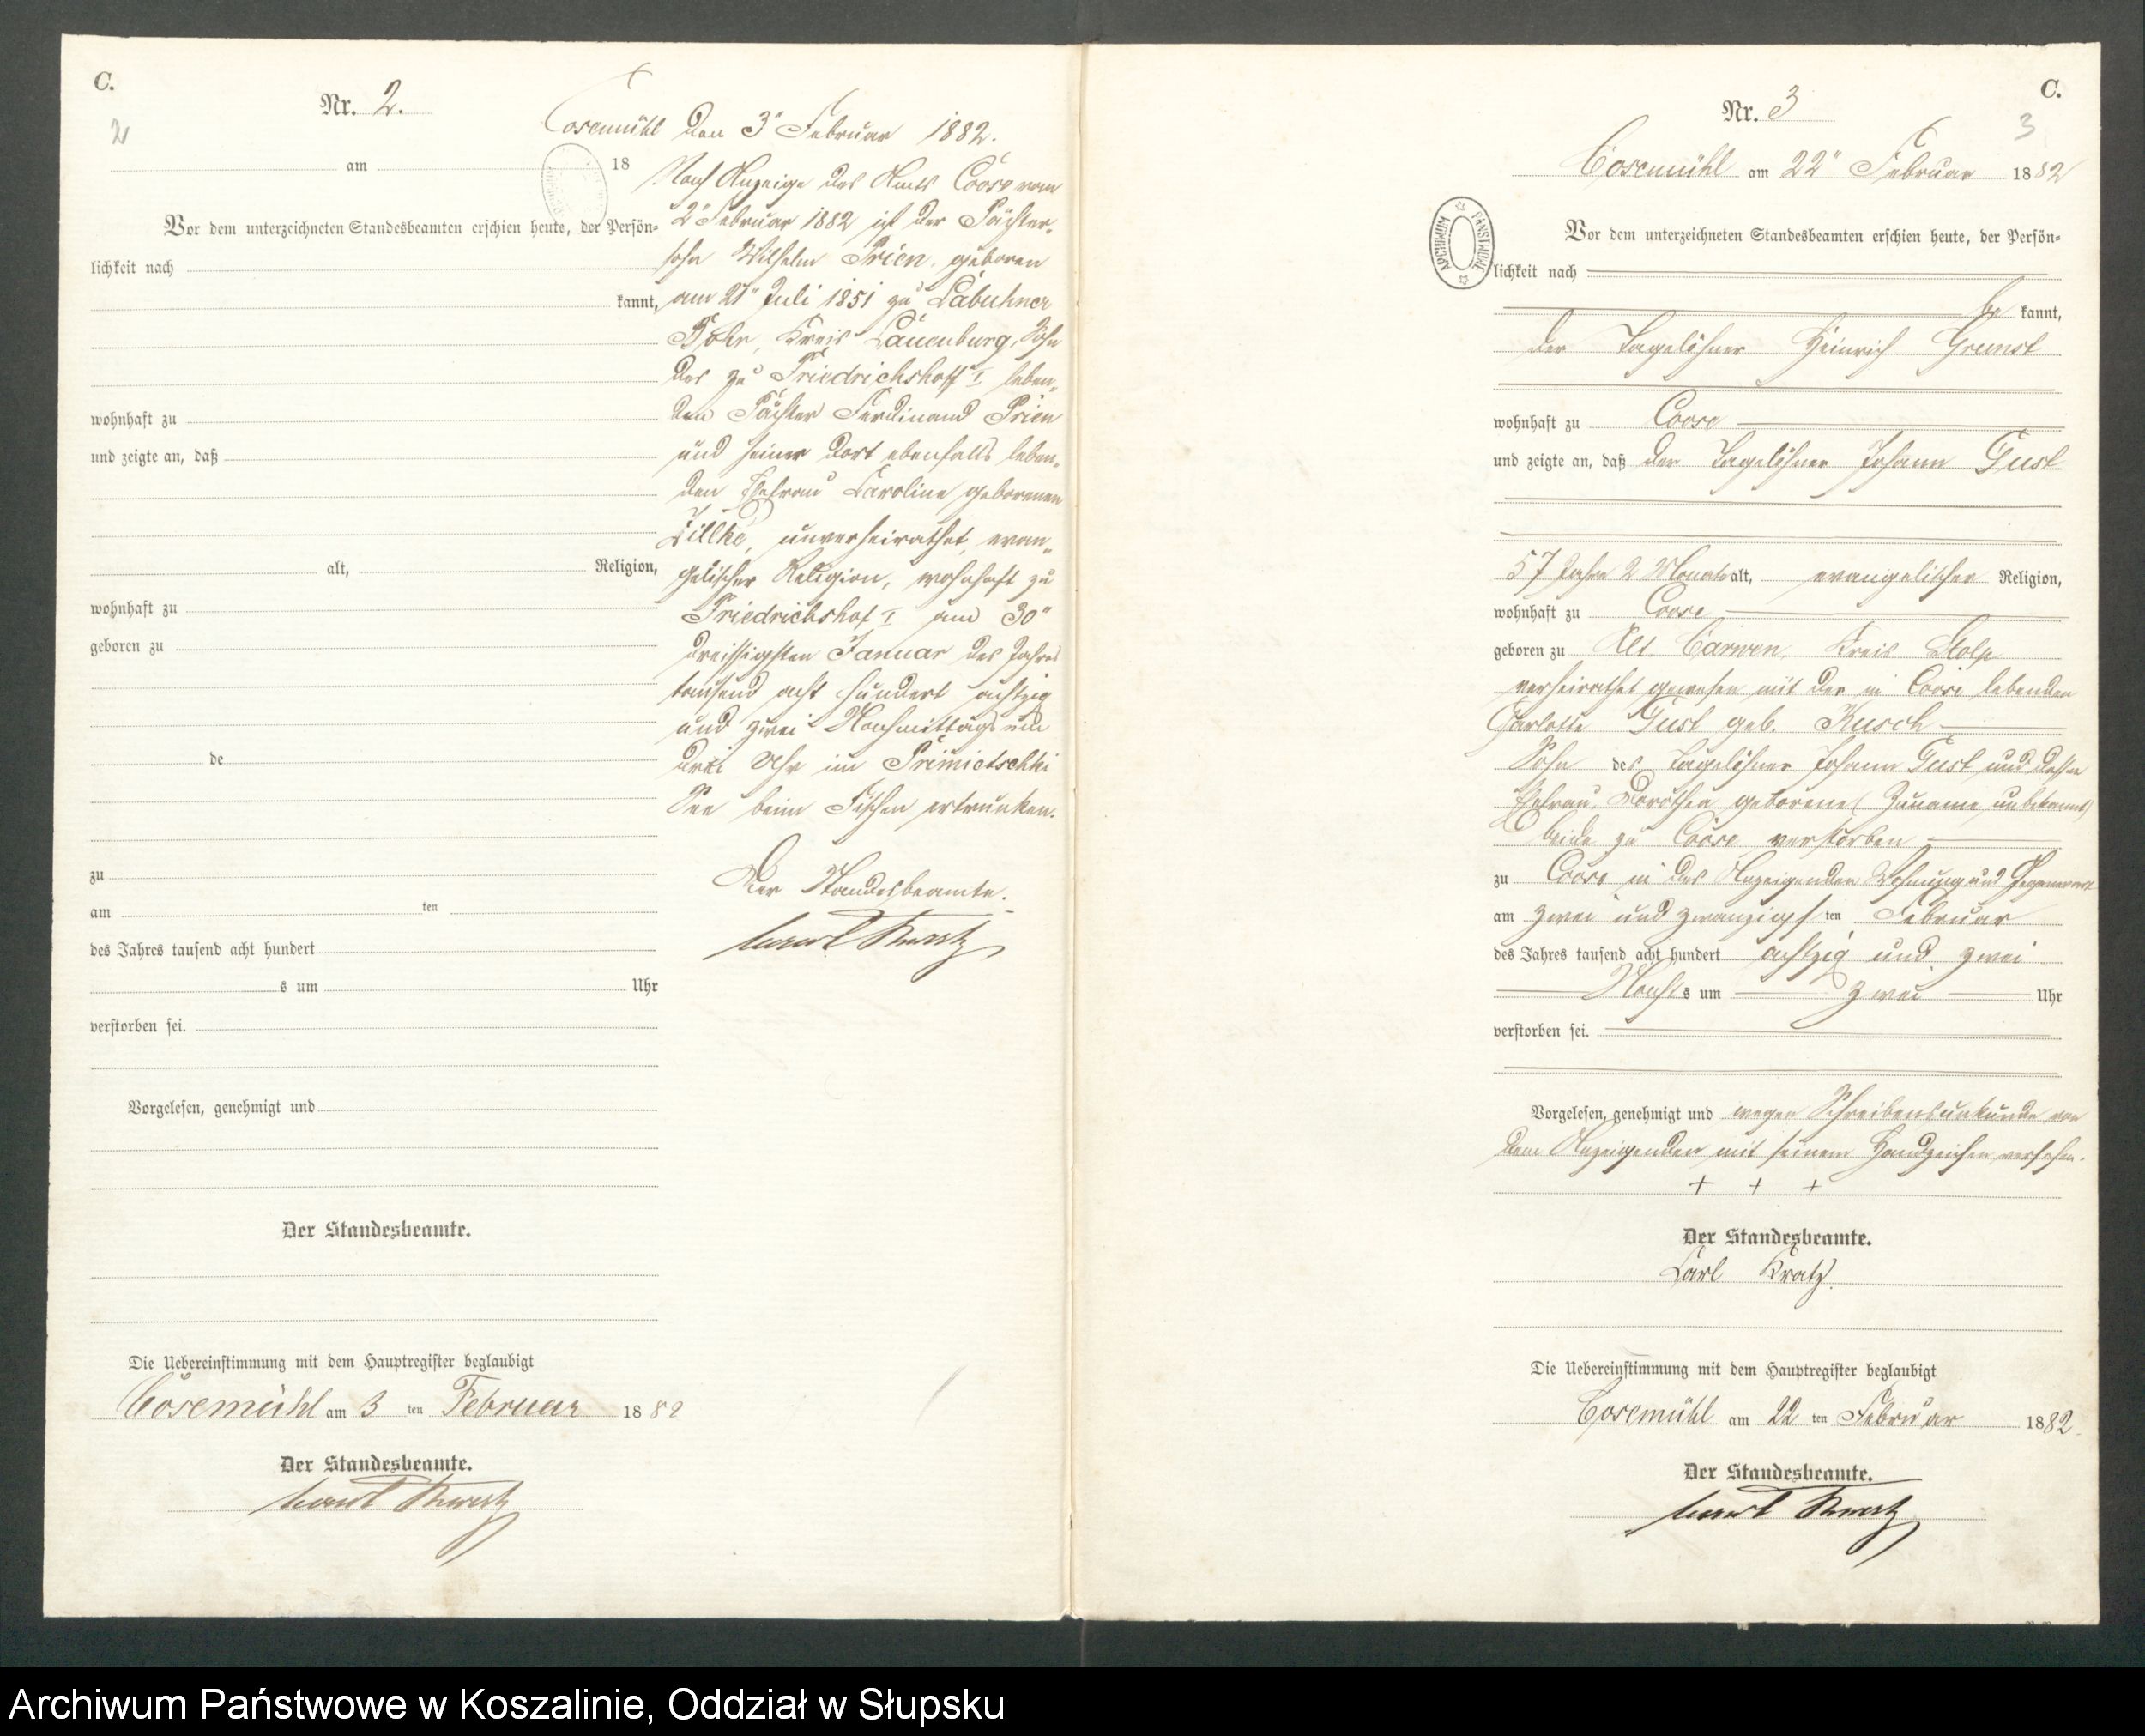 C.
Nr. 2.
2
Cosemühl den 3" Februar 1882.
am 18
Nach Anzeige des Amts Coose vom
Vor dem unterzeichneten Standesbeamten erschien heute, der Persön-
2" Februar 1882 ist der Pächter-
lichkeit nach
sohn Wilhelm Prien, geboren
kannt,
am 21" Juli 1851 zu Labuhner
Kreis Lauenburg, Sohn
des zu Friedrichshoff I leben-
den Pächter Ferdinand Prien
wohnhaft zu
und seiner dort ebenfalls leben-
und zeigte an, daß
den Ehefrau Caroline geborenen
Zillke, unverheirathet, evan-
alt, Religion,
gelischer Religion, wohnhaft zu
wohnhaft zu
Friedrichshof I am 30"
geboren zu
dreissigsten Januar des Jahres
tausend acht hundert achtzig
und zwei Nachmittags um
de
drei Uhr im
See beim Fischen ertrunken.
zu
Der Standesbeamte.
am ten
Carl Kratz
des Jahres tausend acht hundert
s um Uhr
verstorben sei.
Vorgelesen, genehmigt und
Der Standesbeamte.
Die Uebereinstimmung mit dem Hauptregister beglaubigt
Cosemühl am 3 ten Februar 1882
Der Standesbeamte.
Carl Kratz
C.
Nr. 3
3
Cosemühl am 22" Februar 1882
ARCHIWUM PAŃSTWOWE
Vor dem unterzeichneten Standesbeamten erschien heute, der Persön-
lichkeit nach
be kannt,
der Tagelöhner Heinrich
wohnhaft zu Coose
und zeigte an, daß der Tagelöhner Johann Gust
57 Jahre 2 Monate alt, evangelischer Religion,
wohnhaft zu Coose
geboren zu Alt Carwen, Kreis Stolp
verheirathet gewesen mit der in Coose lebenden
Charlotte Gust geb. Kusch
Sohn des Tagelöhner Johann Gust und dessen
Ehefrau Dorothea geborene (Zuname unbekannt)
beide zu Coose verstorben
zu Coose in des Anzeigenden Wohnung und Gegenwart
am zwei und zwanzigs ten Februar
des Jahres tausend acht hundert achtzig und zwei
Nachts um zwei Uhr
verstorben sei.
Vorgelesen, genehmigt und wegen Schreibensunkunde von
dem Anzeigenden mit seinem Handzeichen versehen.
+ + +
Der Standesbeamte.
Carl Kratz
Die Uebereinstimmung mit dem Hauptregister beglaubigt
Cosemühl am 22 ten Februar 1882.
Der Standesbeamte.
Carl Kratz
Archiwum Państwowe w Koszalinie, Oddział w Słupsku